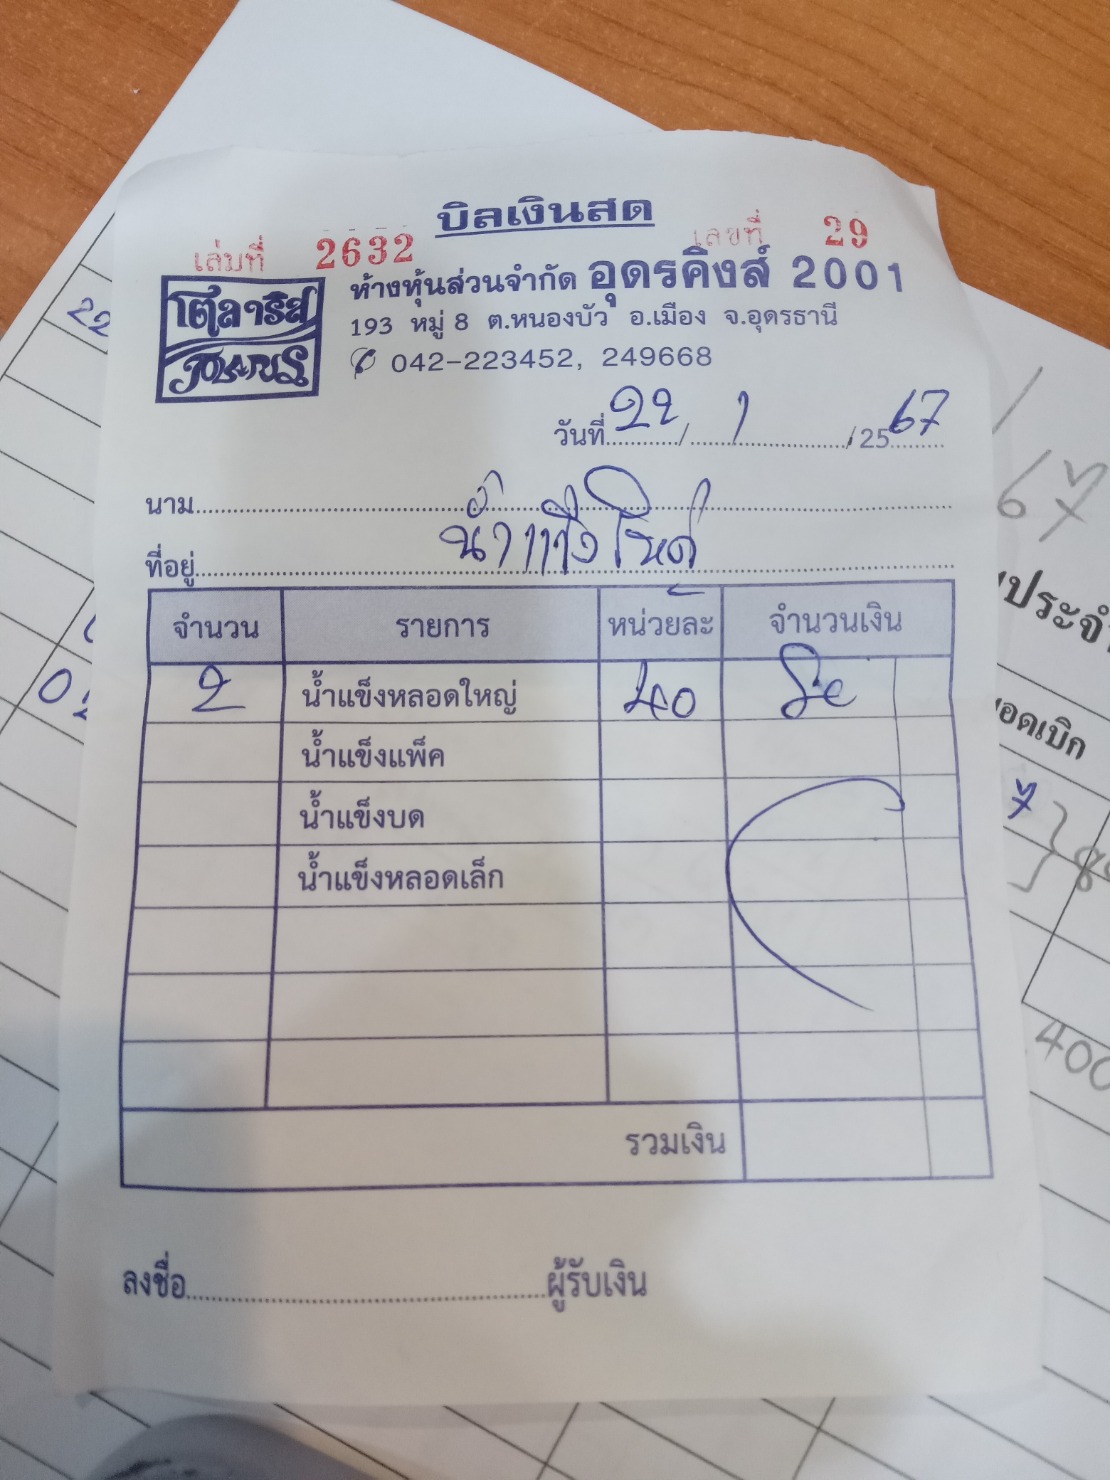 บิลเงินสด
เล่มที่ 2632 เลขที่ 29
โตลาริส
ห้างหุ้นส่วนจำกัด อุดรคิงส์ 2001
193 หมู่ 8 ต.หนองบัว อ.เมือง จ.อุดรธานี
042-223452, 249668
วันที่ 22 / 1 / 2567
นาม
ที่อยู่
จำนวน รายการ หน่วยละ จำนวนเงิน
2 น้ำแข็งหลอดใหญ่ 40
น้ำแข็งแพ็ค
น้ำแข็งบด
น้ำแข็งหลอดเล็ก
รวมเงิน
ลงชื่อ ผู้รับเงิน
22
67
400